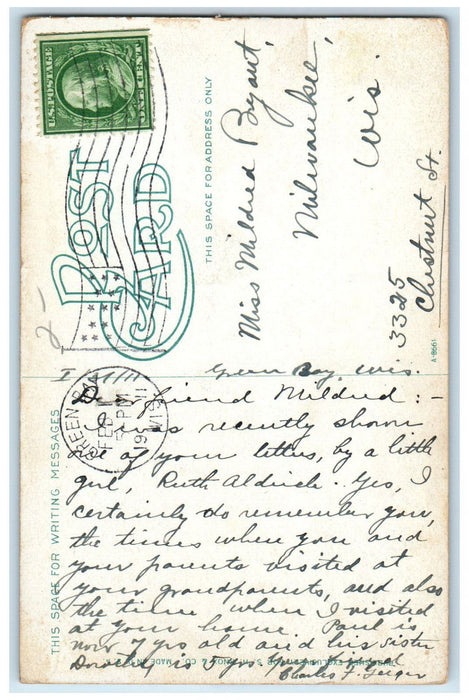 U.S. POSTAGE
ONE CENT
POST
CARD
THIS SPACE FOR ADDRESS ONLY
Miss Mildred Bryant,
Milwaukee,
Wis.
3325
Chestnut St.
A-8661
2-
GREEN BAY
FEB 1
5 PM
1911
WIS.
THIS SPACE FOR WRITING MESSAGES
Green Bay, Wis.
Dear friend Mildred:-
I was recently shown
one of your letters, by a little
girl, Ruth Aldrich. Yes, I
certainly do remember you,
the times when you and
your parents visited at
your grandparents, and also
the time when I visited
at your home. Paul is
now 7 yrs old and his sister
Dorothy is
Charles F. Geiger
MADE IN U.S.A.